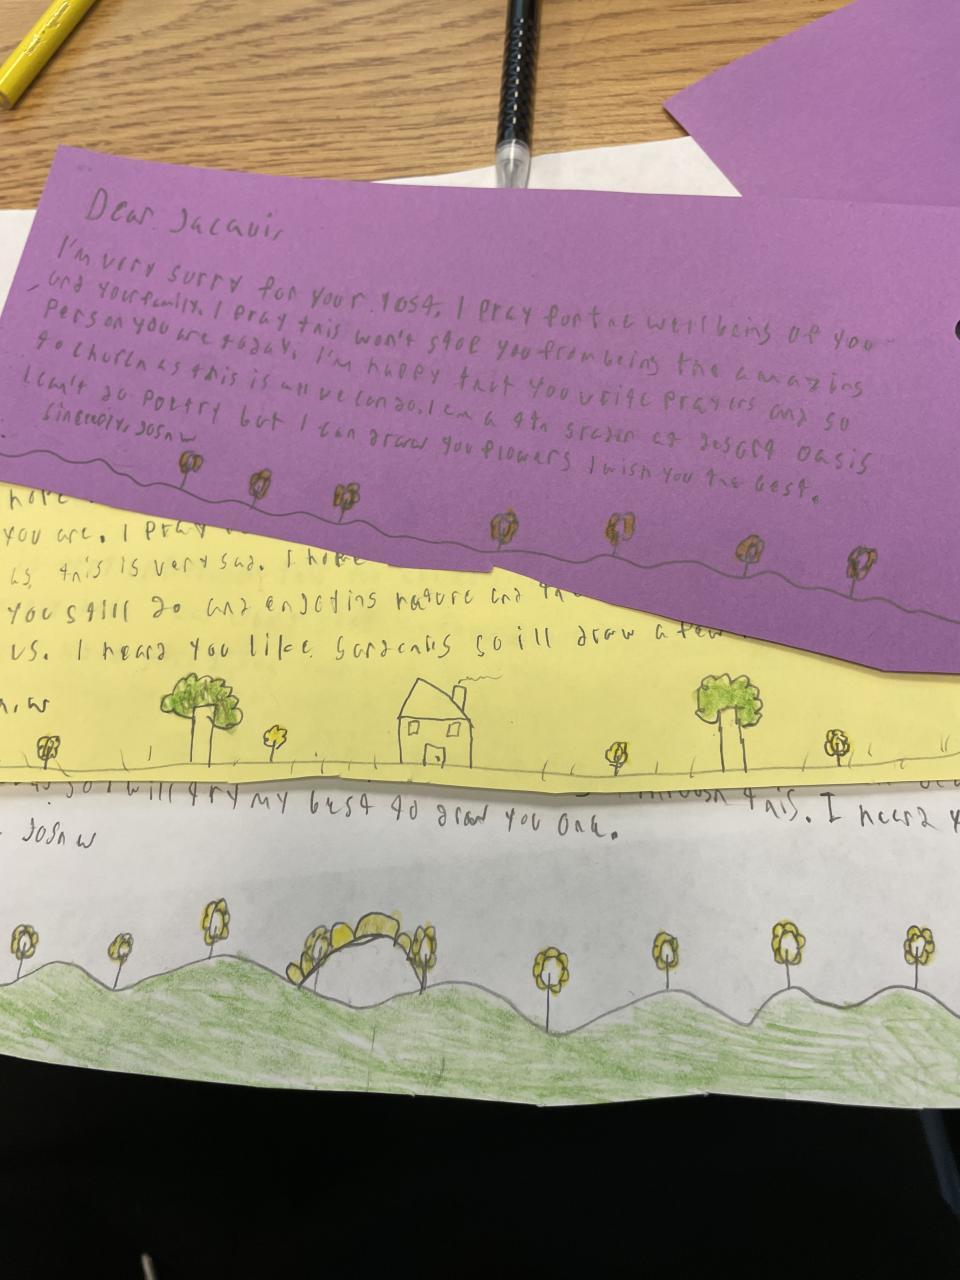 Dear Jacaui,
I'm very surry for your lost. I pray for the well being of you
and your family. I pray this won't stop you from being the amazing
Person you are today. I'm happy that you write prayers and go
to church as this is all we can do. I am a 4th grader at desert oasis
I can't do poetry but I can draw you flowers I wish you the best.
Sincerely, Josh w
hope
you are. I pray
as this is very sad. I hope
you still go and enjoying nature and
us. I heard you like gardens so ill draw a few
h. w
so I will try my best to draw you one. through this. I heard y
Josh w